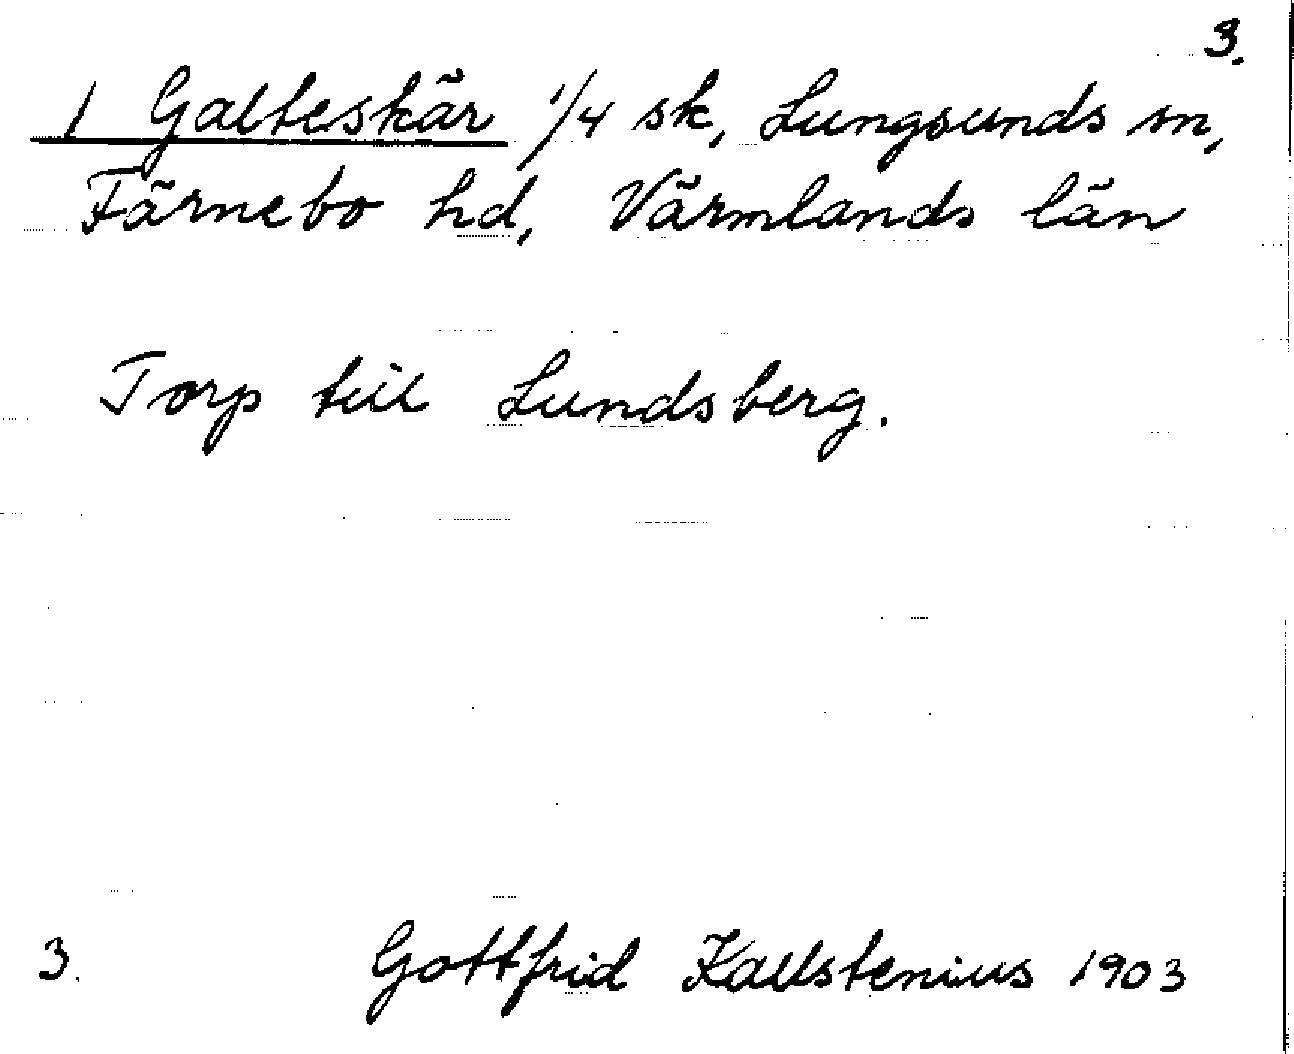 3.
1 Galteskär 1/4 sk, Lungsunds sn,
Färnebo hd, Värmlands län
Torp till Lundsberg.
3. Gottfrid Kallstenius 1903